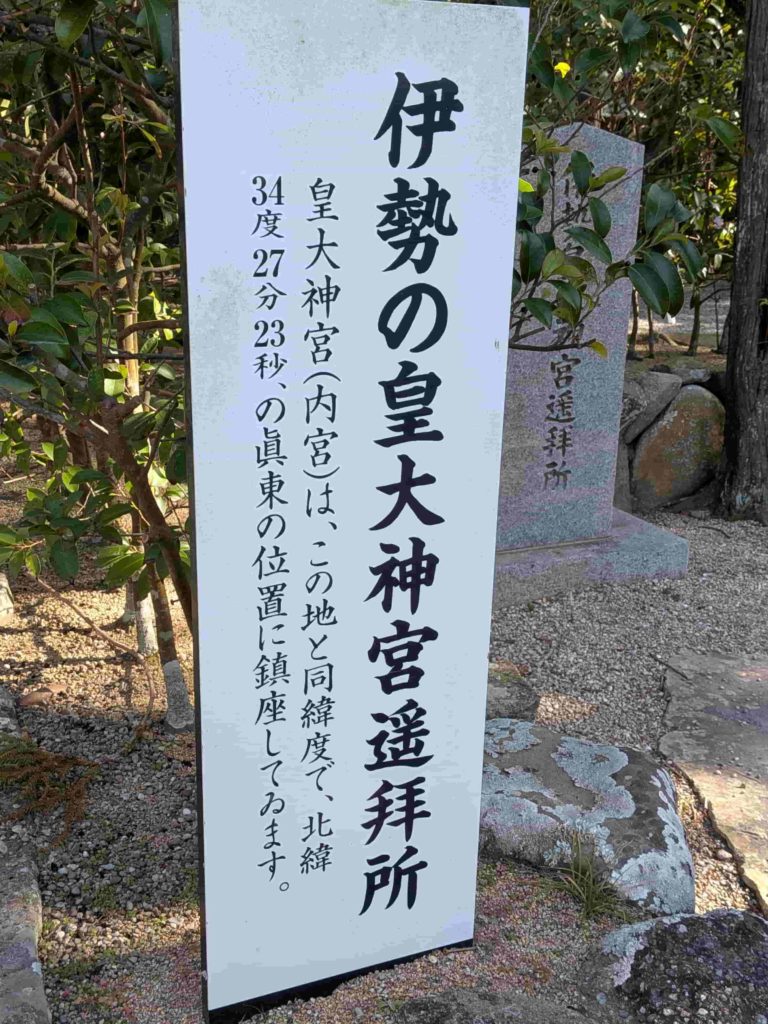 伊勢の皇大神宮遥拝所
皇大神宮(内宮)は、この地と同緯度で、北緯
34度27分23秒、の眞東の位置に鎮座してゐます。
宮遥拝所